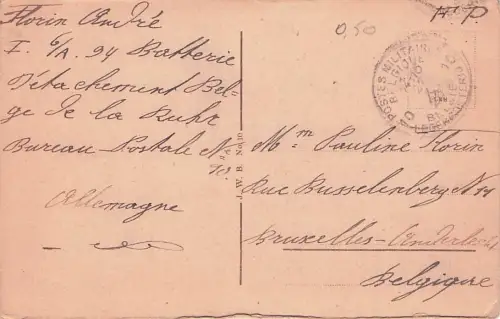 Florin André
I. 6/A. 94 Batterie
Détachement Bel-
ge de la Ruhr
Bureau Postale N°
10
Allemagne
J. W. B. No
0,50
M. P
POSTES MILITAIRES
BELGIQUE
10
Mme Pauline Florin
Rue Busselenberg N 14
Bruxelles-Anderlecht
Belgique